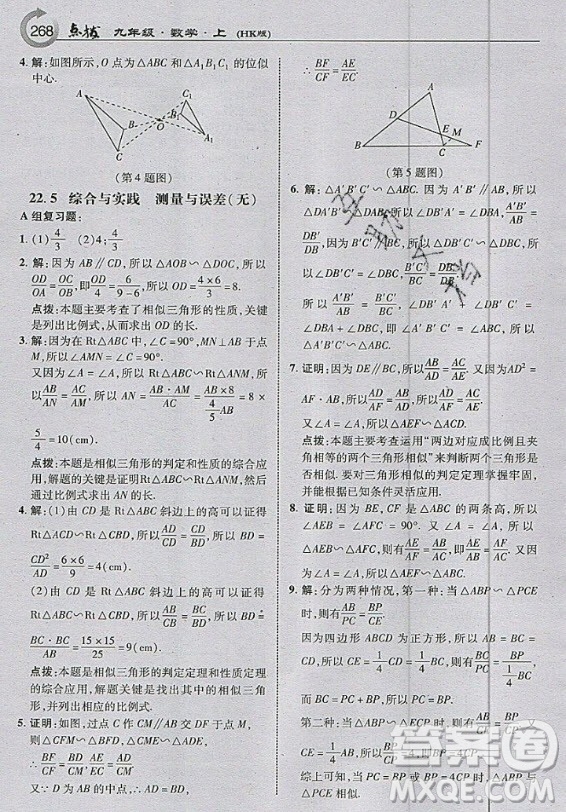 268 点拨 九年级·数学·上 (HK版)
4. 解:如图所示,O 点为△ABC 与△A1B1C1 的位似
中心.
A
B
C
O
C1
B1
A1
(第 4 题图)
22.5 综合与实践 测量与误差(无)
A 组复习题:
1. (1) 4/3 (2) 4; 4/3
2. 解:因为△OAB∽△ODC,所以 OA/OD = OB/OC,所以
OD/OA = OC/OB,即 OD/6 = 6/(9-6),所以 OD = (4×6)/3 = 8.
点拨:本题主要考查了相似三角形的性质,关键
是列出比例式,从而求出 OD 的长.
3. 解:因为在 Rt△ABC 中,∠C=90°,MN⊥AB 于点
M,所以∠AMN=∠C=90°.
又因为∠A=∠A,所以 Rt△ABC∽Rt△ANM,所
以 AB/AN = AC/AM,所以 AN = (AB·AM)/AC = (AB×8)/(4/5 AB) =
8/(4/5) = 10(cm).
点拨:本题是相似三角形的判定和性质的综合应
用,解题的关键是证明 Rt△ABC∽Rt△ANM.
4. 解:(1)由 Rt△ABC 斜边上的高可以证得
Rt△ACD∽Rt△CBD,所以 AD/CD = CD/BD,所以 BD =
CD²/AD = (6×6)/9 = 4(cm).
(2)由 Rt△ABC 斜边上的高可以证得
Rt△ABC∽Rt△CBD,所以 AB/CB = BC/BD,所以 BD
= (BC·BC)/AB = (15×15)/25 = 9(cm).
点拨:本题是三角形的判定定理和性质定理的综
合应用,解题关键是找出其中的相似三角
形,并列出比例式.
5. 证明:如图,过点 C 作 CM∥AB 交 DF 于点 M,所
以△CFM∽△BFD,△CEM∽△AED,所以
BF/CF = BD/CM, AE/CE = AD/CM.
又∵D 为 AB 的中点,∴BD=AD,∴BD/CM = AD/CM,
∴ BF/CF = AE/EC.
A
D
E
M
B
C
F
(第 5 题图)
6. 解:△A′B′C′∽△ABC. 因为 A′B′∥AB,所以
△DA′B′∽△DAB,所以 A′B′/AB = DB′/DB. 又因为
△DB′C′∽△DBC,所以 B′C′/BC = DB′/DB = DC′/DC,所以
A′B′/AB = B′C′/BC. 同理 A′B′/AB = A′C′/AC,所以
△A′B′C′∽△ABC.
7. 证明:因为 DE∥BC,所以 AB/AD = AC/AE. 又因为 AD² =
AF·AB,所以 AB/AD = AD/AF,所以 AD/AF = AC/AE.
又∠A=∠A,所以△AEF∽△ACD.
点拨:本题主要考查运用“两边对应成比例且夹
角相等的两个三角形相似”来判断两个三角形是
否相似.要对三角形的判定定理掌握牢固,
并机动灵活运用.
8. 证明:因为 BE,CF 是△ABC 的高,所以∠AEB
=∠AFC=90°. 又因为∠A=∠A,所以
△ABE∽△ACF,所以 AB/AC = AE/AF,所以 AB/AE = AC/AF.
又∠A=∠A,所以△AEF∽△ABC.
9. 解:分为两种情况,第一种:当△ABP∽△PCE
时,所以 AB/PC = BP/CE.
因为四边形 ABCD 为正方形,所以 AB = BC =
CD,因为 CE = 1/4 CD,所以 CE = 1/4 BC,所以 BC/PC = BP/(1/4 BC),
因为 BC = PC + BP,所以 BP = CP.
第二种:当△ABP∽△ECP 时,所以 AB/CE = BP/PC,
CE = 1/4 AB,所以 BP = 4CP.
综上可知,当 BP = CP 或 BP = 4CP 时,△ABP 与
△PCE 相似.